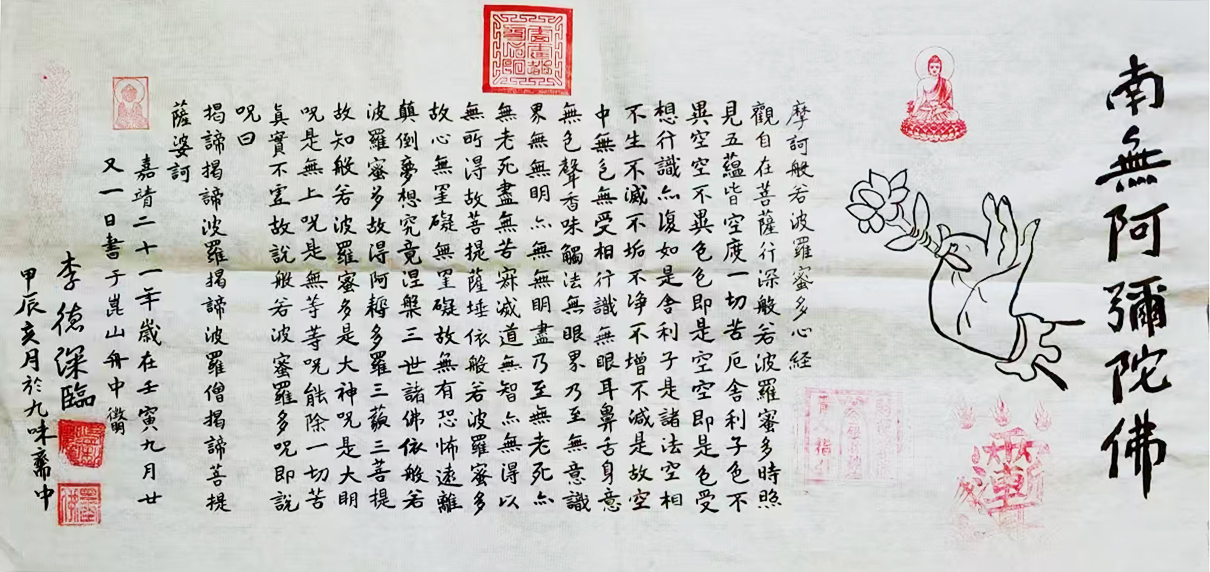 南無阿彌陀佛
摩訶般若波羅蜜多心經
觀自在菩薩行深般若波羅蜜多時照
見五蘊皆空度一切苦厄舍利子色不
異空空不異色色即是空空即是色受
想行識亦復如是舍利子是諸法空相
不生不滅不垢不淨不增不減是故空
中無色無受相行識無眼耳鼻舌身意
無色聲香味觸法無眼界乃至無意識
界無無明亦無無明盡乃至無老死亦
無老死盡無苦寂滅道無智亦無得以
無所得故菩提薩埵依般若波羅蜜多
故心無罣礙無罣礙故無有恐怖遠離
顛倒夢想究竟涅槃三世諸佛依般若
波羅蜜多故得阿耨多羅三藐三菩提
故知般若波羅蜜多是大神呪是大明
呪是無上呪是無等等呪能除一切苦
真實不虛故說般若波蜜羅多呪即說
呪曰
揭諦揭諦波羅揭諦波羅僧揭諦菩提
薩婆訶
嘉靖二十一年歲在壬寅九月廿
又一日書于崑山舟中徵明
李德深臨
甲辰亥月於九味齋中